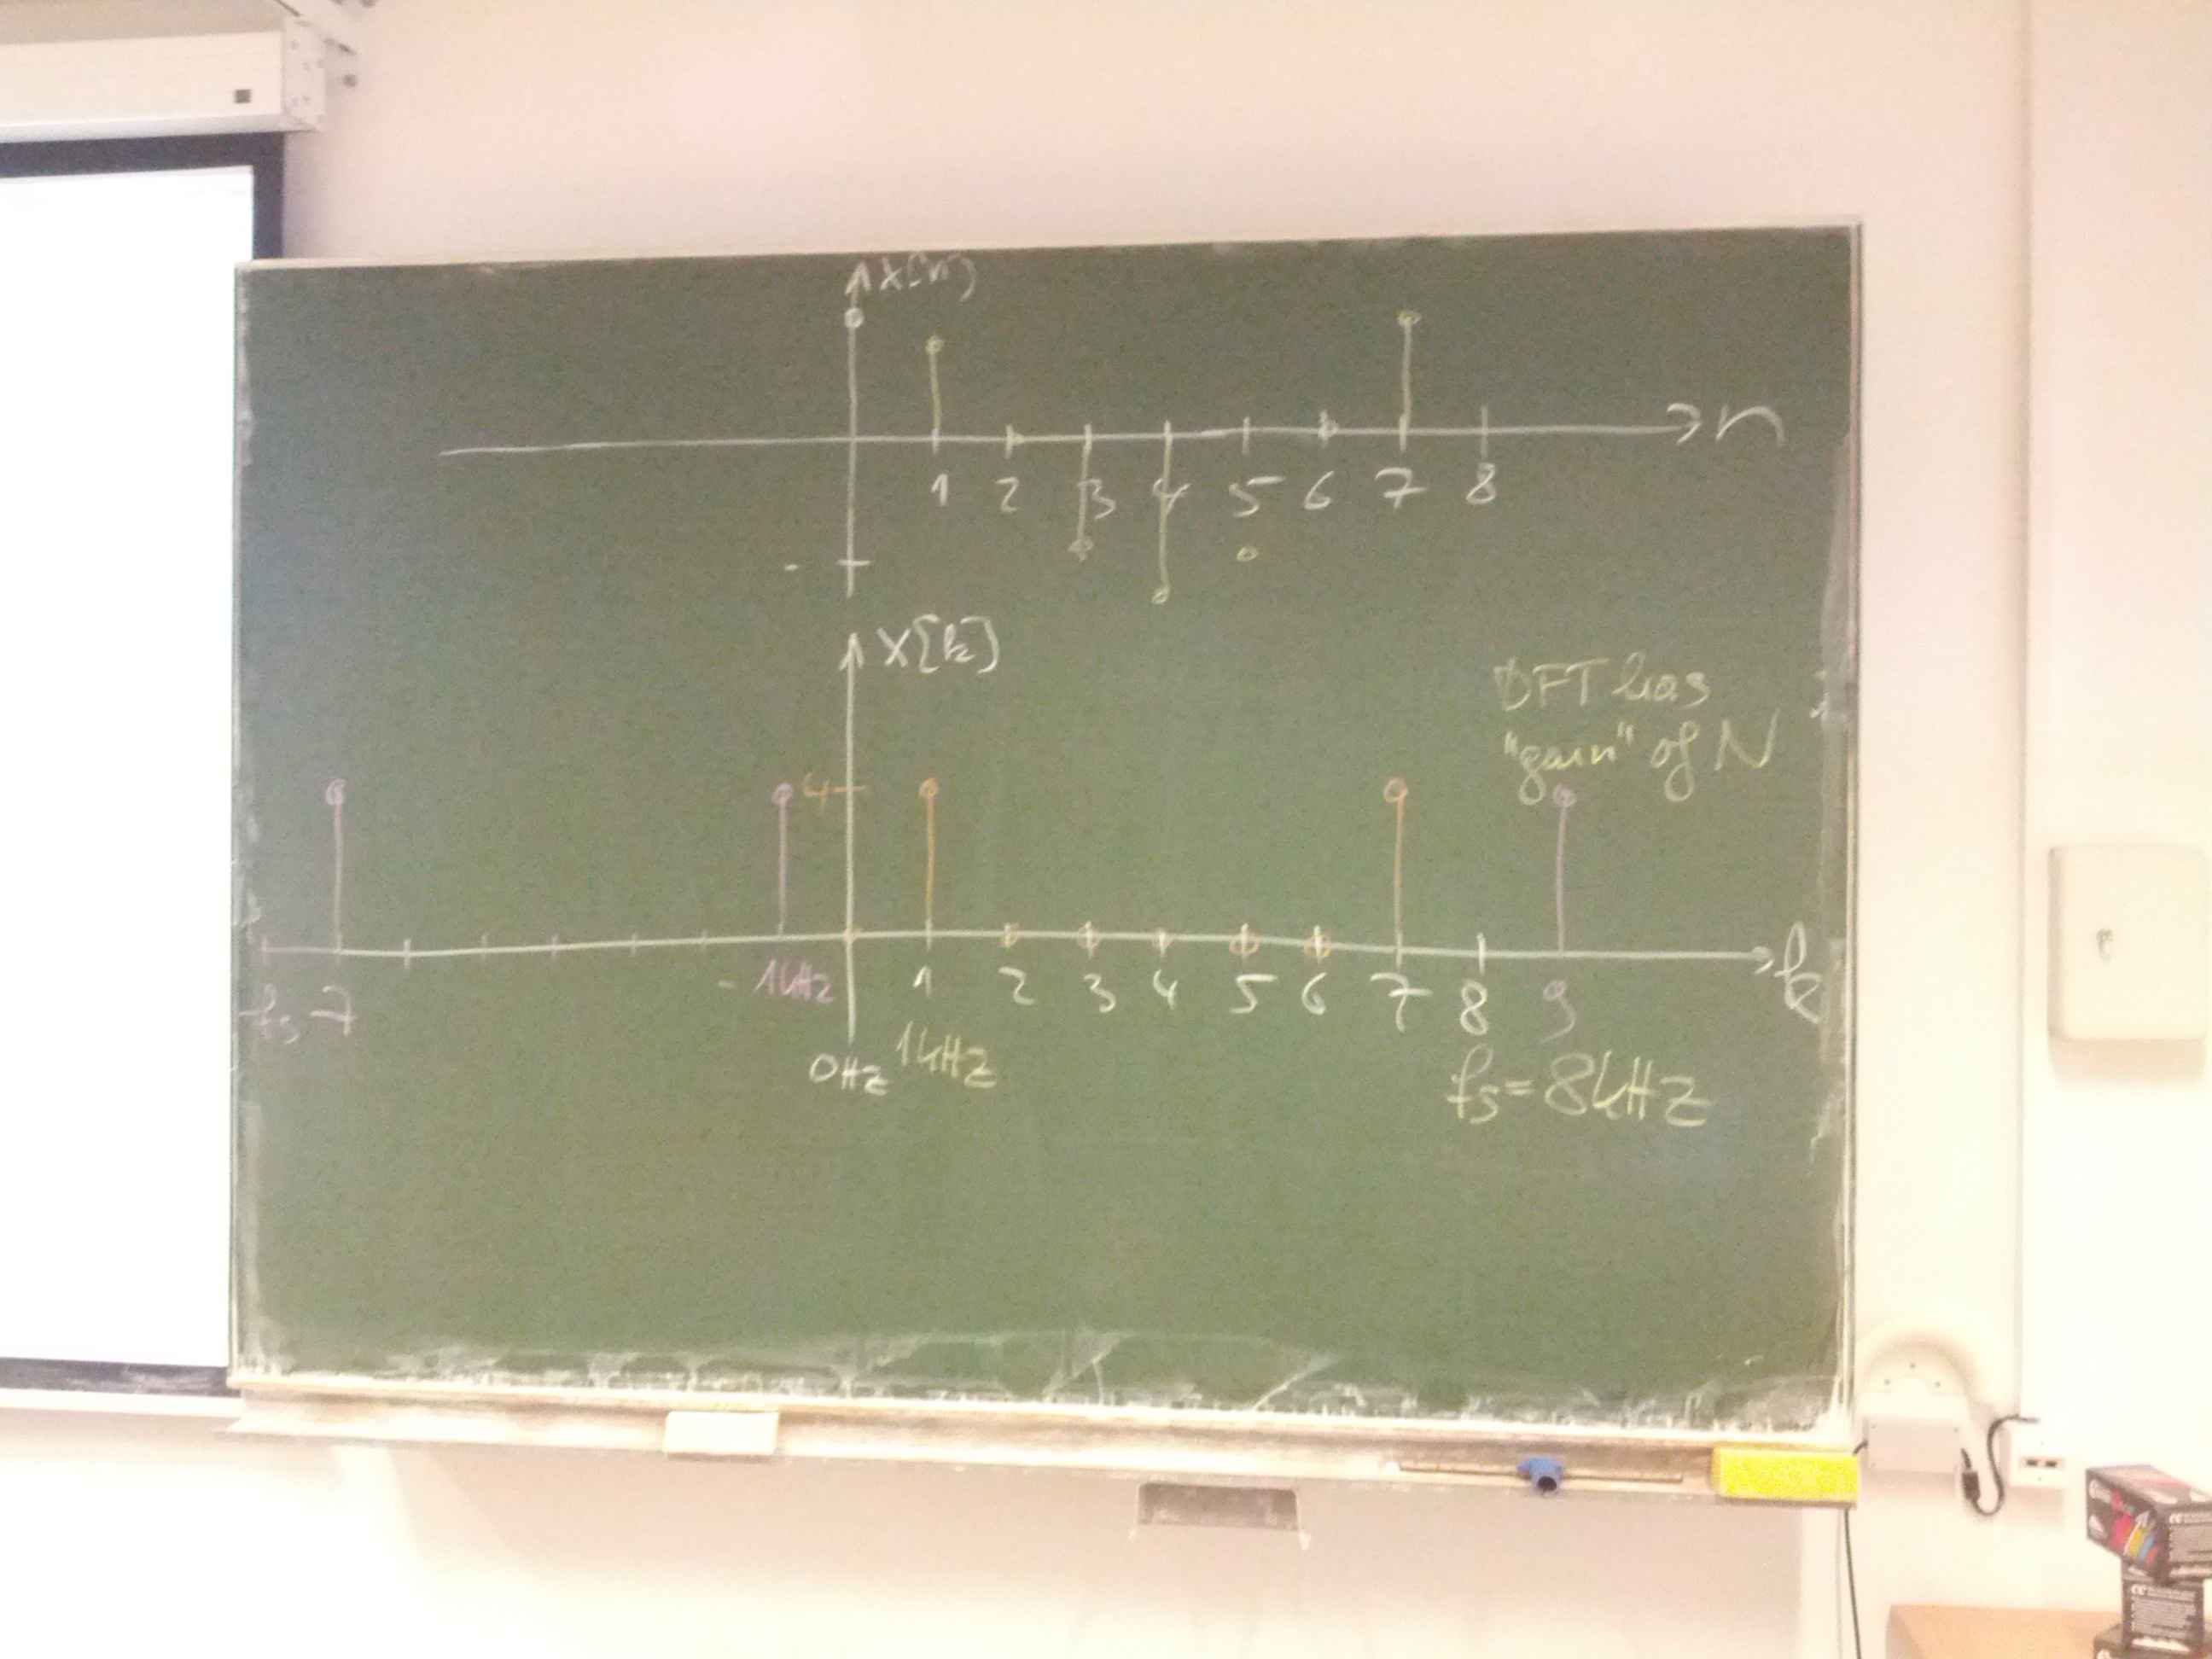 x[n]
n
1 2 3 4 5 6 7 8
-
X[k]
DFT has
"gain" of N
4
k
-1kHz 1 2 3 4 5 6 7 8 9
-7
0Hz 1kHz
fs=8kHz